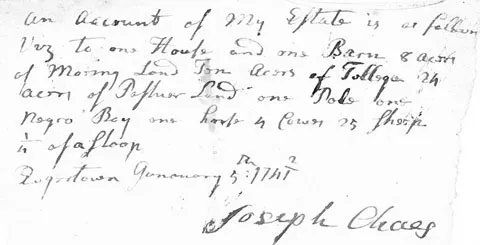 an Account of My Estate is as follows
Viz to one House and one Barn 8 acors
of Moring Land Ten Acors of Tollege 24
acors of Pastuer Land one Pole one
Negro Boy one horse 4 Cowes 25 Sheep
1/4 of a Sloop
Edgertown Genewary 5th: 174 1/2
Joseph Chaes